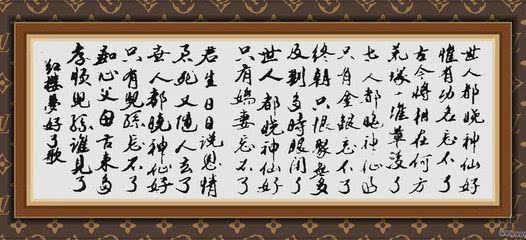 世人都晓神仙好
惟有功名忘不了
古今将相在何方
荒塚一堆草没了
世人都晓神仙好
只有金银忘不了
终朝只恨聚无多
及到多时眼闭了
世人都晓神仙好
只有嬌妻忘不了
君生日日说恩情
君死又随人去了
世人都晓神仙好
只有兒孫忘不了
痴心父母古来多
孝顺兒孫谁见了
红楼夢好了歌